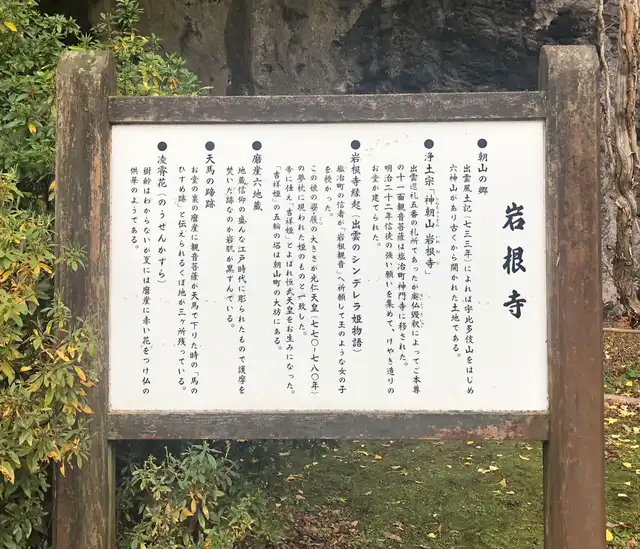 岩根寺
●朝山の郷
出雲風土記(七三三年)によれば宇比多伎山をはじめ
六神山があり古くから開かれた土地である。
●浄土宗「神朝山 岩根寺
出雲巡礼五番の札所であったが廃仏毀釈によってご本尊
の十一面観音菩薩は塩冶町神門寺に移された。
明治二十二年信徒の強い願いを集めて、けやき造りの
お堂が建てられた。
●岩根寺縁起(出雲のシンデレラ姫物語)
塩冶町の信者が「岩根観音」へ祈願して玉のような女の子
を授かった。
この娘の姿の大きさが光仁天皇(七七〇~七八〇年)
の夢枕に現われた姫のものと一致した。
帝に仕え「吉祥姫」とよばれ恒武天皇をお生みになった。
「吉祥姫」の五輪の塔は朝山町の大坊にある。
●磨崖六地蔵
地蔵信仰の盛んな江戸時代に彫られたもので護摩を
焚いた跡なのか岩肌が黒ずんでいる。
●天馬の蹄跡
お堂の裏の磨崖に観音菩薩が天馬で下りた時の「馬の
ひずめ跡」と伝えられるくぼ地が三ヶ所残っている。
●凌霄花(のうぜんかずら)
樹齢はわからないが夏には磨崖に赤い花をつけ仏の
供華のようである。